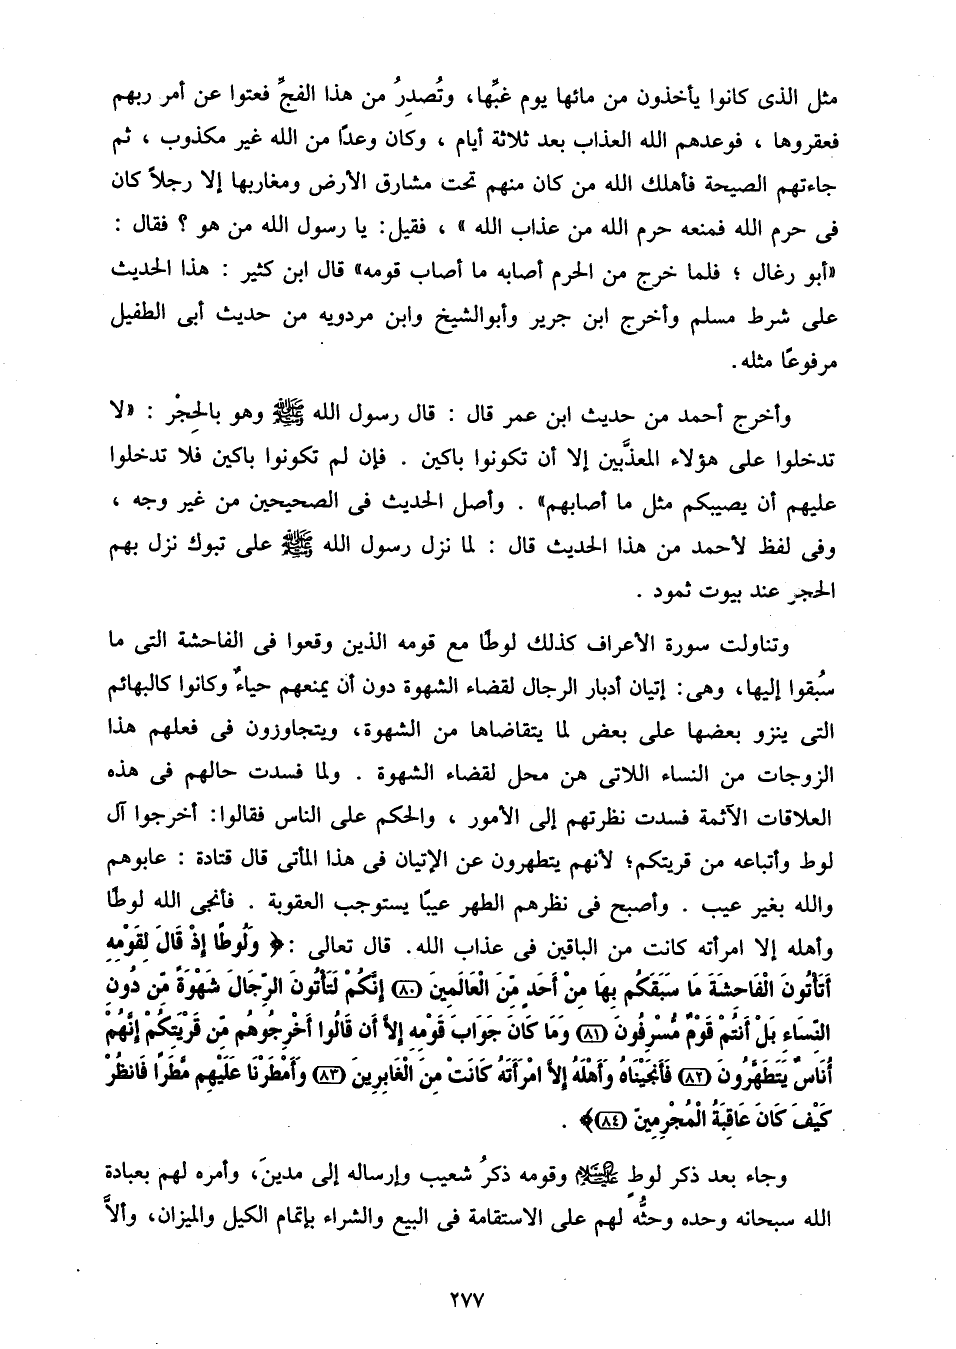 مثل الذى كانوا يأخذون من مائها يوم غبِّها، وتُصدِرُ من هذا الفجِّ فعتوا عن أمر ربهم
فعقروها ، فوعدهم الله العذاب بعد ثلاثة أيام ، وكان وعدًا من الله غير مكذوب ، ثم
جاءتهم الصيحة فأهلك الله من كان منهم تحت مشارق الأرض ومغاربها إلا رجلاً كان
فى حرم الله فمنعه حرم الله من عذاب الله » ، فقيل: يا رسول الله من هو ؟ فقال :
«أبو رغال ؛ فلما خرج من الحرم أصابه ما أصاب قومه» قال ابن كثير : هذا الحديث
على شرط مسلم وأخرج ابن جرير وأبوالشيخ وابن مردويه من حديث أبى الطفيل
مرفوعًا مثله.
وأخرج أحمد من حديث ابن عمر قال : قال رسول الله ﷺ وهو بالحِجْر : «لا
تدخلوا على هؤلاء المعذَّبين إلا أن تكونوا باكين . فإن لم تكونوا باكين فلا تدخلوا
عليهم أن يصيبكم مثل ما أصابهم» . وأصل الحديث فى الصحيحين من غير وجه ،
وفى لفظ لأحمد من هذا الحديث قال : لما نزل رسول الله ﷺ على تبوك نزل بهم
الحجر عند بيوت ثمود .
وتناولت سورة الأعراف كذلك لوطًا مع قومه الذين وقعوا فى الفاحشة التى ما
سُبقوا إليها، وهى: إتيان أدبار الرجال لقضاء الشهوة دون أن يمنعهم حياءٌ وكانوا كالبهائم
التى ينزو بعضها على بعض لما يتقاضاها من الشهوة، ويتجاوزون فى فعلهم هذا
الزوجات من النساء اللاتى هن محل لقضاء الشهوة . ولما فسدت حالهم فى هذه
العلاقات الآثمة فسدت نظرتهم إلى الأمور ، والحكم على الناس فقالوا: أخرجوا آل
لوط وأتباعه من قريتكم؛ لأنهم يتطهرون عن الإتيان فى هذا المأتى قال قتادة : عابوهم
والله بغير عيب . وأصبح فى نظرهم الطهر عيبًا يستوجب العقوبة . فأنجى الله لوطًا
وأهله إلا امرأته كانت من الباقين فى عذاب الله. قال تعالى :﴿ وَلُوطًا إِذْ قَالَ لِقَوْمِهِ
أَتَأْتُونَ الْفَاحِشَةَ مَا سَبَقَكُم بِهَا مِنْ أَحَدٍ مِّنَ الْعَالَمِينَ (٨٠) إِنَّكُمْ لَتَأْتُونَ الرِّجَالَ شَهْوَةً مِّن دُونِ
النِّسَاءِ بَلْ أَنتُمْ قَوْمٌ مُّسْرِفُونَ (٨١) وَمَا كَانَ جَوَابَ قَوْمِهِ إِلاَّ أَن قَالُوا أَخْرِجُوهُم مِّن قَرْيَتِكُمْ إِنَّهُمْ
أُنَاسٌ يَتَطَهَّرُونَ (٨٢) فَأَنجَيْنَاهُ وَأَهْلَهُ إِلاَّ امْرَأَتَهُ كَانَتْ مِنَ الْغَابِرِينَ (٨٣) وَأَمْطَرْنَا عَلَيْهِم مَّطَرًا فَانظُرْ
كَيْفَ كَانَ عَاقِبَةُ الْمُجْرِمِينَ (٨٤)﴾ .
وجاء بعد ذكر لوطٍ عليه السلام وقومه ذكرُ شعيب وإرساله إلى مدينَ، وأمره لهم بعبادة
الله سبحانه وحده وحثُّه لهم على الاستقامة فى البيع والشراء بإتمام الكيل والميزان، وألاَّ
٢٧٧